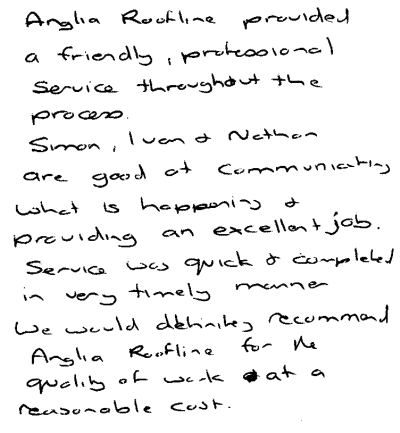 Anglia Roofline provided
a friendly, professional
Service throughout the
process.
Simon, Ivan & Nathan
are good at communicating
what is happening &
providing an excellent job.
Service was quick & completed
in very timely manner
We would definitely recommend
Anglia Roofline for the
quality of work at a
reasonable cost.